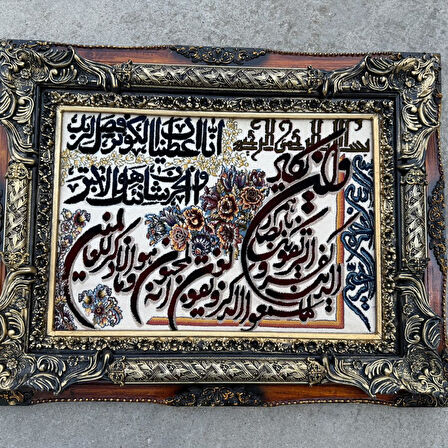 بسم الله الرحمن الرحیم
انا اعطیناک الکوثر فصل لربک
وانحر ان شانئک هو الابتر
وان یکاد
الذین کفروا لیزلقونک بابصارهم
لما سمعوا الذکر و یقولون
انه لمجنون
وما هو الا ذکر للعالمین